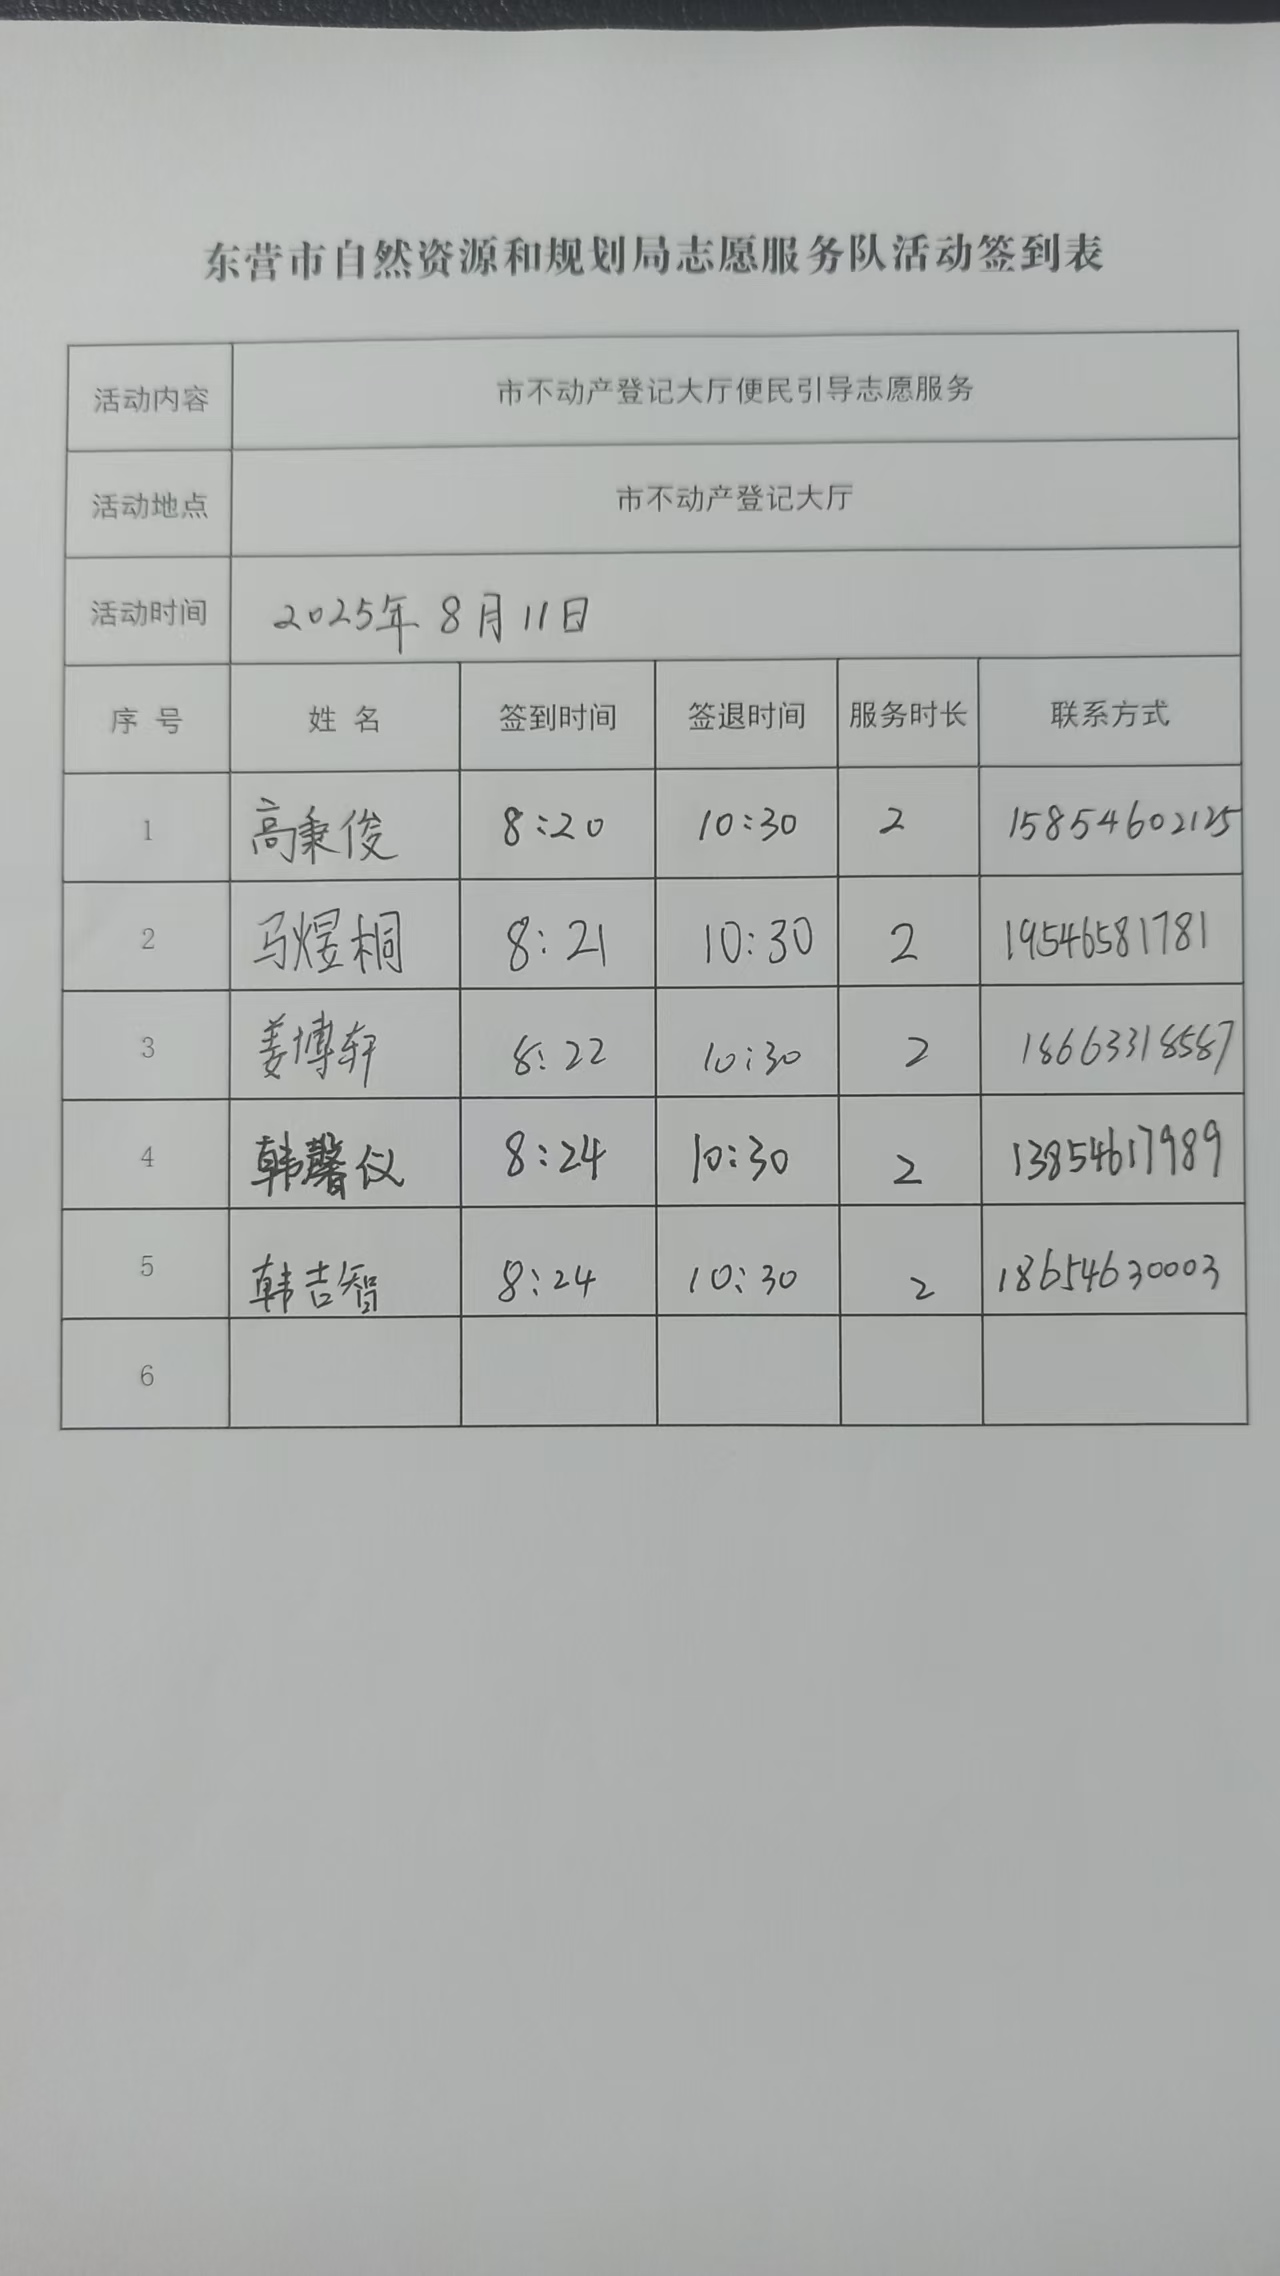 东营市自然资源和规划局志愿服务队活动签到表
活动内容 市不动产登记大厅便民引导志愿服务
活动地点 市不动产登记大厅
活动时间 2025年8月11日
序号 姓名 签到时间 签退时间 服务时长 联系方式
1 高秉俊 8:20 10:30 2 15854602125
2 马煜桐 8:21 10:30 2 19546581781
3 姜博轩 8:22 10:30 2 18663318587
4 韩馨仪 8:24 10:30 2 13854617989
5 韩吉智 8:24 10:30 2 18654630003
6